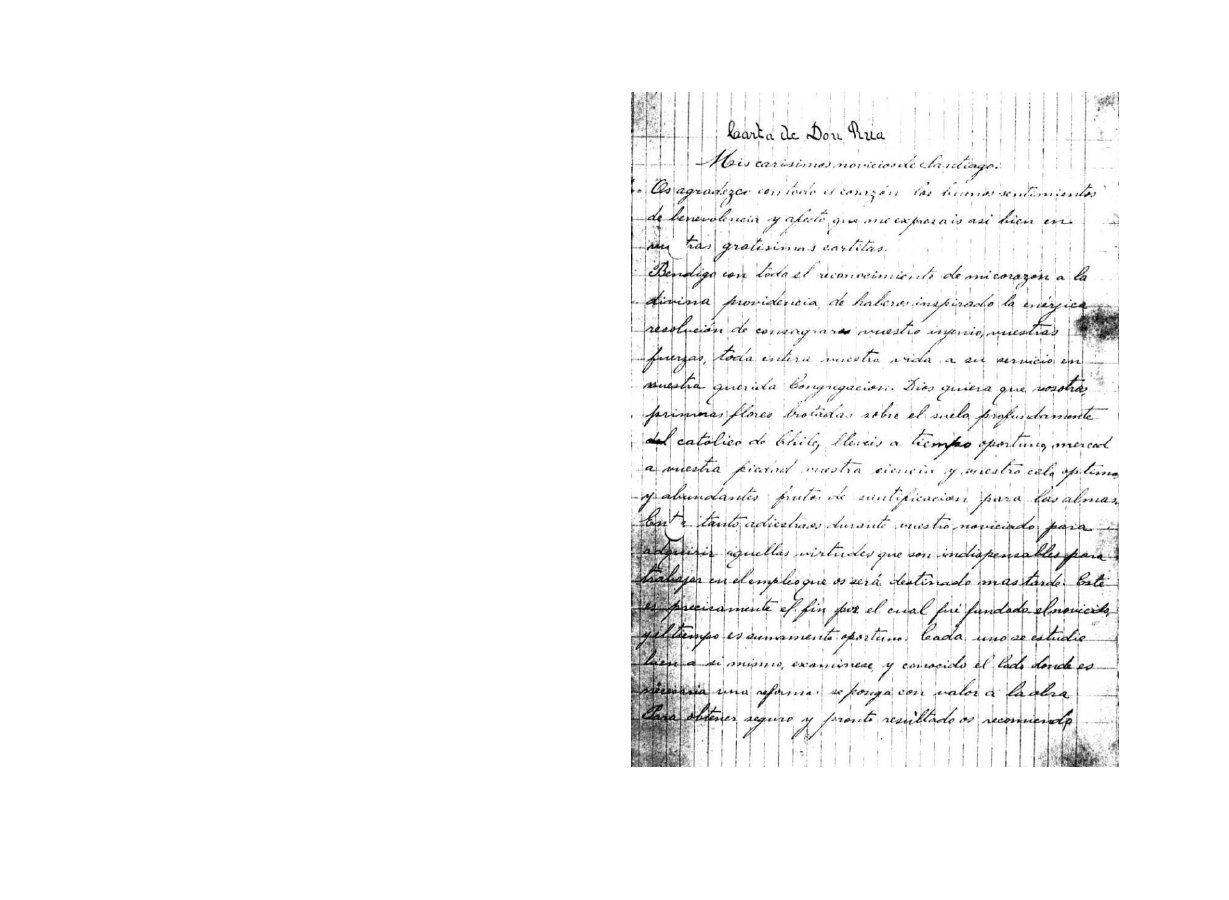 Carta de Don Rua
Mis carisimos novicios de Santiago:
Os agradezco con todo el corazón los buenos sentimientos
de benevolencia y afecto que me expresais asi bien en
tras gratisimas cartitas.
Bendigo con todo el reconocimiento de mi corazon a la
divina providencia, de haberos inspirado la enérgica
resolución de consagrar vuestro ingenio, vuestras
fuerzas, toda entera vuestra vida a su servicio en
nuestra querida Congregacion. Dios quiera que vosotros,
primeras flores brotadas sobre el suelo profundamente
católico de Chile, lleveis a tiempo oportuno, merced
a vuestra piedad vuestra ciencia y vuestro celo, optimos
y abundantes frutos de santificacion para las almas.
tanto adiestraos durante vuestro noviciado para
adquirir aquellas virtudes que son indispensables para
trabajar en el empleo que os será destinado mas tarde. Este
es precisamente el fin por el cual fué fundado el noviciado,
y el tiempo es sumamente oportuno. Cada uno se estudie
bien a si mismo, examinese, y conocido el lado donde es
necesaria una reforma se ponga con valor a la obra
Para obtener seguro y pronto resultado os recomiendo